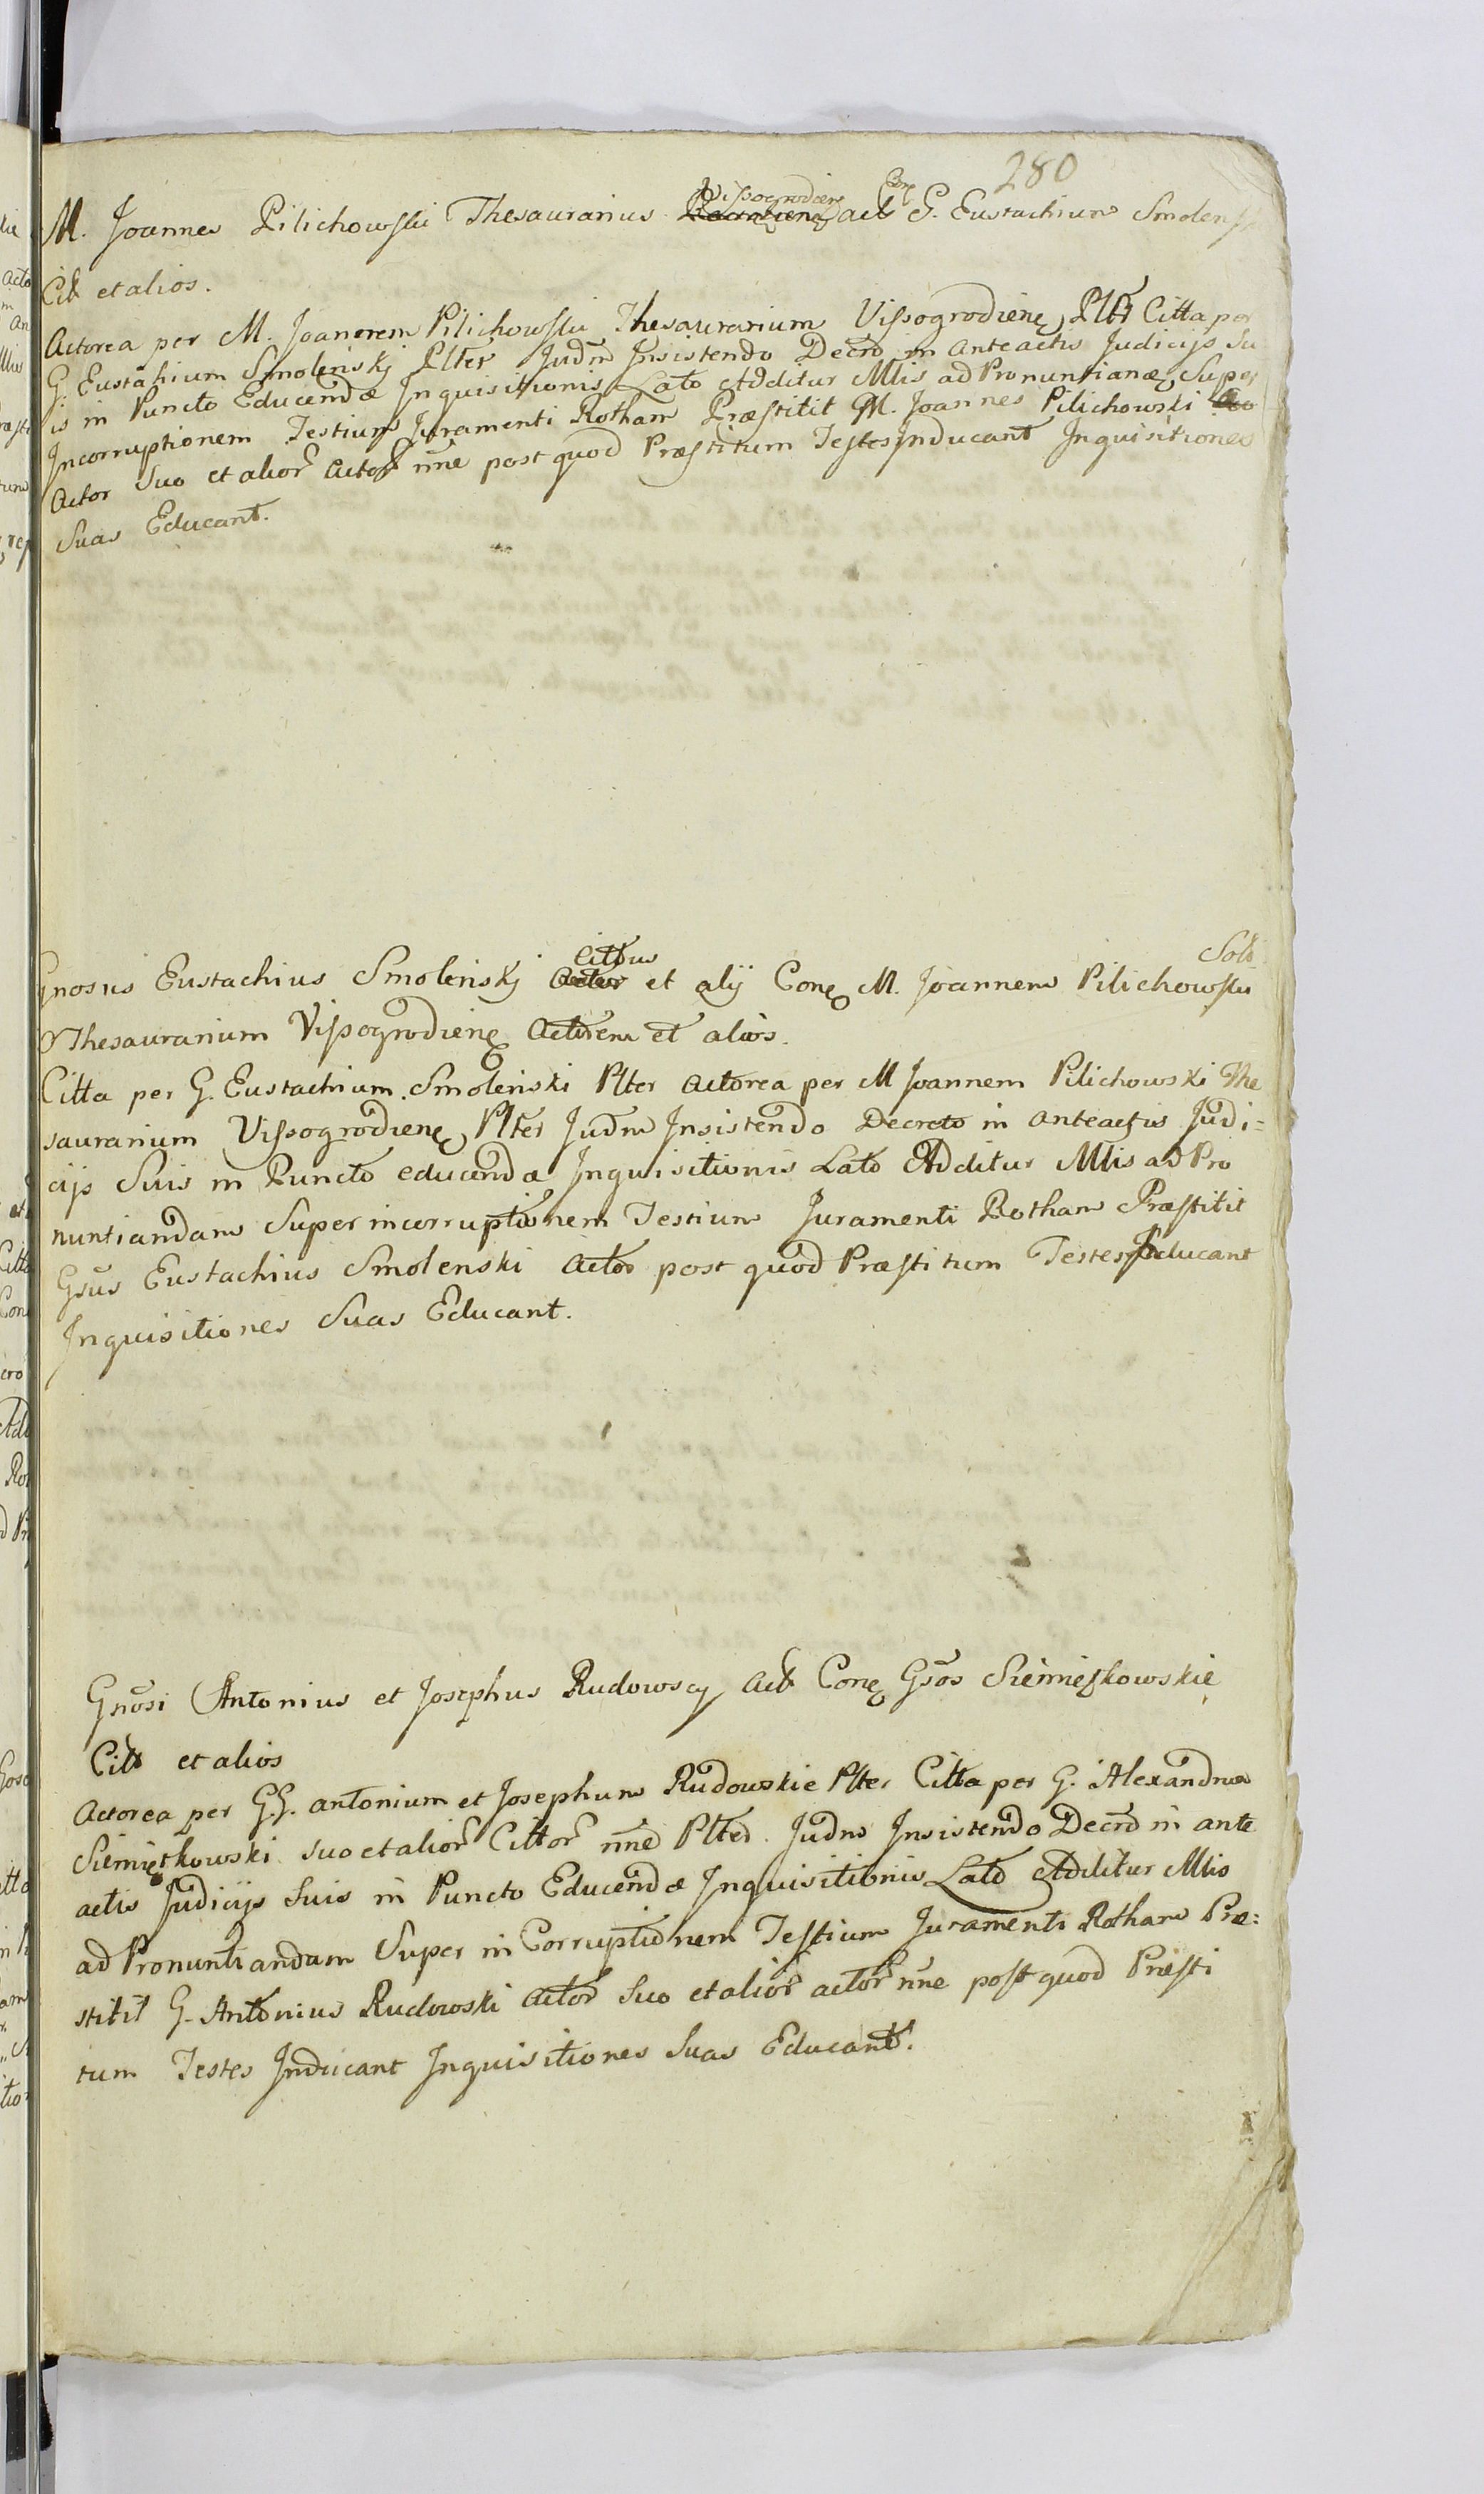 280
M. Joannes Pilichowski Thesaurarius Vissogrodiens Act Cong G. Eustachium Smolensk
Citt et alios.
Actorea per M. Joannem Pilichowski Thesaurarium Vissogrodieng Pltr Citta per
G. Eustahium Smolenskj Plter Judm Insistendo Decro in anteactis Judicijs Su
is in Puncto Educendæ Inquisitionis Lato Additur Mlis ad Pronuntianæ Super
Incorruptionem Testium Juramenti Rotham Præstitit M. Joannes Pilichowski
Actor Suo et alior Actor nne post quod Præstitum Testes Inducant Inquisitiones
Suas Educant.
Gnosus Eustachius Smolenskj Cittus et alij Cong M. Joannem Pilichowski
Thesaurarium Vissogrodieng Actorem et alios.
Citta per G. Eustachium Smolenski Plter Actorea per M Joannem Pilichowski The
saurarium Vissogrodieng Plter Judm Insistendo Decreto in anteactis Judi=
cijs Suis in Puncto educendæ Inquisitionis Lato Additur Mlis ad Pro
nuntiandam Super incorruptionem Testium Juramenti Rotham Præstitit
Gsus Eustachius Smolenski Actor post quod Præstitum Testes Inducant
Inquisitiones Suas Educant.
Gnosi Antonius et Josephus Rudowscy Act Cong Gsos Siemiętkowskie
Citt et alios
Actorea per G.G. antonium et Josephum Rudowskie Plter Citta per G. Alexandrum
Siemiętkowski suo et alior Cittor nne Plter Judm Insistendo Decro in ante
actis Judicijs Suis in Puncto Educendæ Inquisitionis Lato Additur Mlis
ad Pronuntiandum Super in Corruptionem Testium Juramenti Rotham Præ=
stitit G. Antonius Rudowski Actor Suo et alior actor nne post quod Præsti
tum Testes Inducant Inquisitiones Suas Educant.